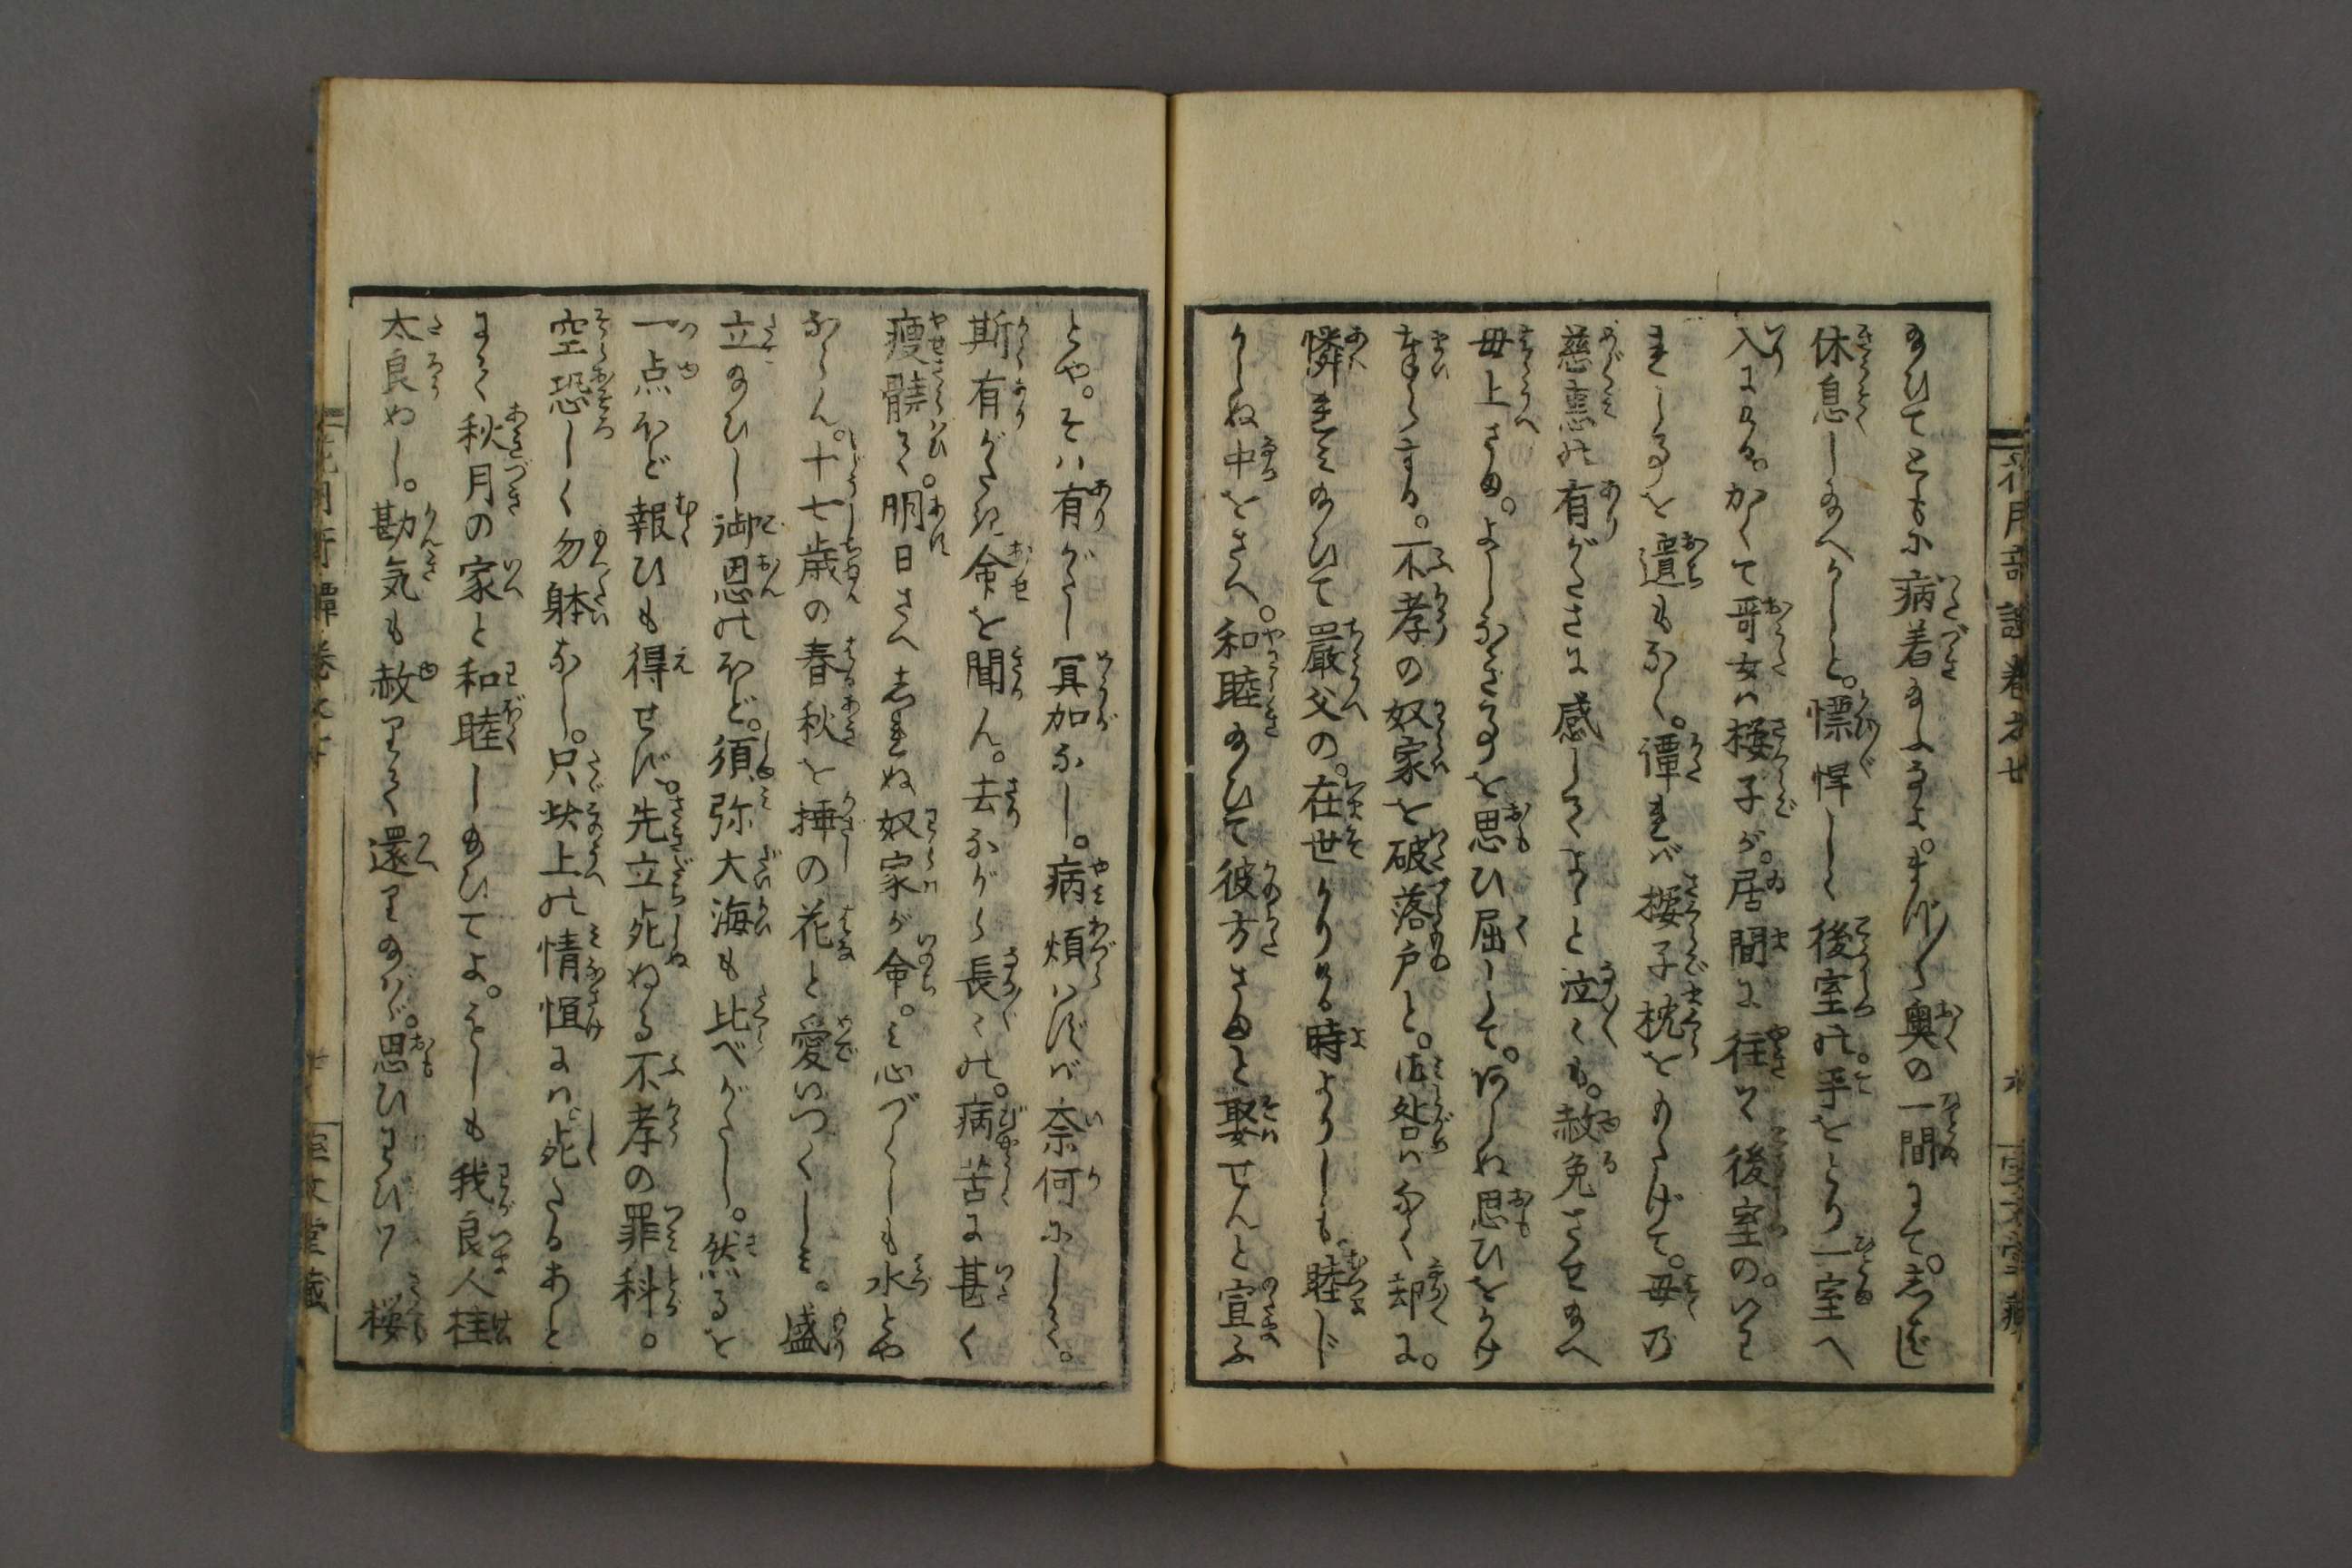 給ひてともに病着給ふなよ。まづ〳〵奥の一間にて。しばし
休息し給へかしと。慓悍しく後室の。手をとり一室へ
入にける。かくて哥女は桜子が。居間に往て後室の。いは
れしことを遺もなく。譚れば桜子枕をもたげて。母の
慈悲の有がたさに感してよゝと泣くも。赦免させ給へ
母上さま。よしなきことを思ひ屈して。あらぬ思ひをかけ
まゐらする。不孝の奴家を破落戸と。御咎はなく却に。
憐れみ給ひて厳父の。在世かりける時よりしも。睦じ
からぬ中をさへ。和睦給ひて彼方さまと娶せんと宣ふ
とや。そは有がたし冥加なし。病煩はずば奈何にして。
斯有がたき命を聞ん。去ながら長々の。病苦に甚く
痩髐て。明日さへしれぬ奴家が命。み心づくしも水とや
ならん。十七歳の春秋を挿の花と愛いつくしみ。盛
立給ひし御恩のほど。須弥大海も比べがたし。然るを
一点ほど報ひも得せず。先立死ぬる不孝の罪科。
空恐しく勿躰なし。只母上の情恒には。死たるあと
にて秋月の家と和睦し給ひてよ。そしも我良人桂
太良ぬし。勘気も赦りて還り給はゞ。思ひわびつゝ桜
花月奇譚巻之廿
宝文堂蔵